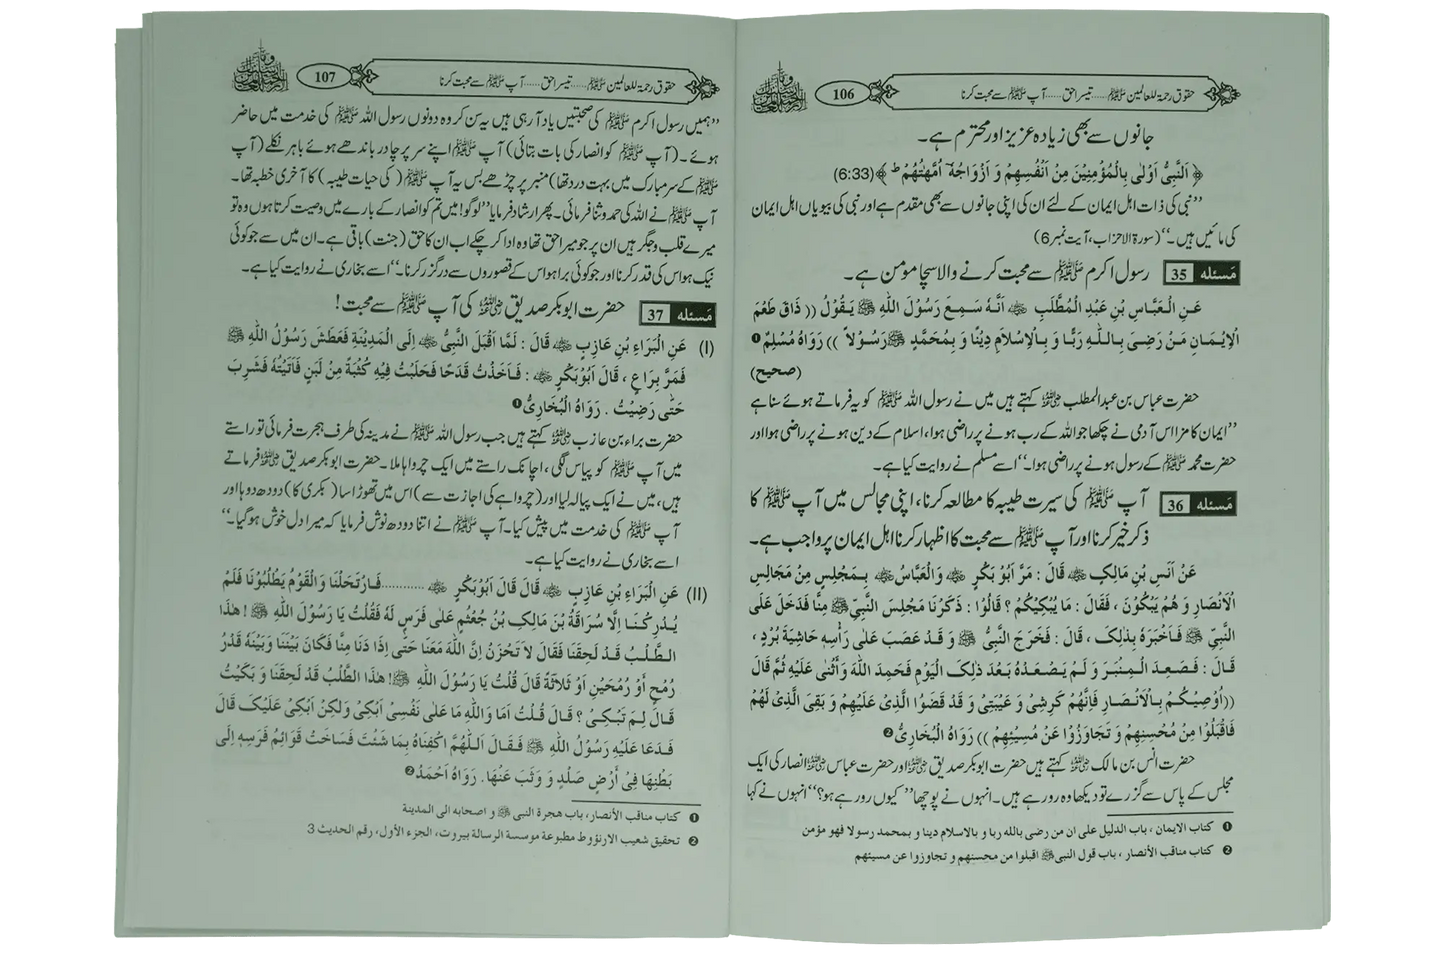 106
حقوق رحمۃ للعالمین ﷺ ...... تیسرا حق ...... آپ ﷺ سے محبت کرنا
جانوں سے بھی زیادہ عزیز اور محترم ہے۔
﴿ اَلنَّبِیُّ اَوْلٰی بِالْمُؤْمِنِیْنَ مِنْ اَنْفُسِهِمْ وَ اَزْوَاجُهٗٓ اُمَّهٰتُهُمْ ط ﴾ (6:33)
’’نبی کی ذات اہل ایمان کے لئے ان کی اپنی جانوں سے بھی مقدم ہے اور نبی کی بیویاں اہل ایمان
کی مائیں ہیں۔‘‘ (سورۃ الاحزاب، آیت نمبر 6)
مَسئله 35 رسول اکرم ﷺ سے محبت کرنے والا سچا مؤمن ہے۔
عَنِ الْعَبَّاسِ بْنِ عَبْدِ الْمُطَّلِبِ ؓ اَنَّهٗ سَمِعَ رَسُوْلَ اللّٰهِ ﷺ یَقُوْلُ (( ذَاقَ طَعْمَ
الْاِیْمَانِ مَنْ رَضِیَ بِاللّٰهِ رَبًّا وَ بِالْاِسْلاَمِ دِیْنًا وَ بِمُحَمَّدٍ ﷺ رَسُوْلاً )) رَوَاهُ مُسْلِمٌ ❶
(صحیح)
حضرت عباس بن عبدالمطلب ؓ کہتے ہیں میں نے رسول اللہ ﷺ کو یہ فرماتے ہوئے سنا ہے
’’ایمان کا مزا اس آدمی نے چکھا جو اللہ کے رب ہونے پر راضی ہوا، اسلام کے دین ہونے پر راضی ہوا اور
حضرت محمد ﷺ کے رسول ہونے پر راضی ہوا۔‘‘ اسے مسلم نے روایت کیا ہے۔
مَسئله 36 آپ ﷺ کی سیرت طیبہ کا مطالعہ کرنا، اپنی مجالس میں آپ ﷺ کا
ذکر خیر کرنا اور آپ ﷺ سے محبت کا اظہار کرنا اہل ایمان پر واجب ہے۔
عَنْ اَنَسِ بْنِ مَالِکٍ ؓ قَالَ : مَرَّ اَبُوْ بَکْرٍ ؓ وَالْعَبَّاسُ ؓ بِمَجْلِسٍ مِنْ مَجَالِسِ
الْاَنْصَارِ وَ هُمْ یَبْکُوْنَ ، فَقَالَ : مَا یُبْکِیْکُمْ ؟ قَالُوْا : ذَکَرْنَا مَجْلِسَ النَّبِیِّ ﷺ مِنَّا فَدَخَلَ عَلَی
النَّبِیِّ ﷺ فَاَخْبَرَهٗ بِذٰلِکَ ، قَالَ : فَخَرَجَ النَّبِیُّ ﷺ وَ قَدْ عَصَبَ عَلٰی رَأْسِهٖ حَاشِیَةَ بُرْدٍ ،
قَالَ : فَصَعِدَ الْمِنْبَرَ وَ لَمْ یَصْعَدْهُ بَعْدَ ذٰلِکَ الْیَوْمِ فَحَمِدَ اللّٰهَ وَاَثْنٰی عَلَیْهِ ثُمَّ قَالَ
((اُوْصِیْکُمْ بِالْاَنْصَارِ فَاِنَّهُمْ کَرِشِیْ وَ عَیْبَتِیْ وَ قَدْ قَضَوُا الَّذِیْ عَلَیْهِمْ وَ بَقِیَ الَّذِیْ لَهُمْ
فَاقْبَلُوْا مِنْ مُحْسِنِهِمْ وَ تَجَاوَزُوْا عَنْ مُسِیْئِهِمْ )) رَوَاهُ الْبُخَارِیُّ ❷
حضرت انس بن مالک ؓ کہتے ہیں حضرت ابوبکر صدیق ؓ اور حضرت عباس ؓ انصار کی ایک
مجلس کے پاس سے گزرے تو دیکھا وہ رو رہے ہیں۔ انہوں نے پوچھا ’’کیوں رو رہے ہو؟‘‘ انہوں نے کہا
❶ کتاب الایمان ، باب الدلیل علی ان من رضی بالله ربا و بالاسلام دینا و بمحمد رسولا فهو مؤمن
❷ کتاب مناقب الأنصار ، باب قول النبی ﷺ اقبلوا من محسنهم و تجاوزوا عن مسیئهم
107
حقوق رحمۃ للعالمین ﷺ ...... تیسرا حق ...... آپ ﷺ سے محبت کرنا
’’ہمیں رسول اکرم ﷺ کی صحبتیں یاد آ رہی ہیں یہ سن کر وہ دونوں رسول اللہ ﷺ کی خدمت میں حاضر
ہوئے۔ (آپ ﷺ کو انصار کی بات بتائی) آپ ﷺ اپنے سر پر چادر باندھے ہوئے باہر نکلے (آپ
ﷺ کے سر مبارک میں بہت درد تھا) منبر پر چڑھے بس یہ آپ ﷺ (کی حیات طیبہ) کا آخری خطبہ تھا۔
آپ ﷺ نے اللہ کی حمد و ثنا فرمائی۔ پھر ارشاد فرمایا ’’لوگو! میں تم کو انصار کے بارے میں وصیت کرتا ہوں وہ تو
میرے قلب و جگر ہیں ان پر جو میرا حق تھا وہ ادا کر چکے اب ان کا حق (جنت) باقی ہے۔ ان میں سے جو کوئی
نیک ہو اس کی قدر کرنا اور جو کوئی برا ہو اس کے قصوروں سے درگزر کرنا۔‘‘ اسے بخاری نے روایت کیا ہے۔
مَسئله 37 حضرت ابوبکر صدیق ؓ کی آپ ﷺ سے محبت!
(I) عَنِ الْبَرَاءِ بْنِ عَازِبٍ ؓ قَالَ : لَمَّا اَقْبَلَ النَّبِیُّ ﷺ اِلَی الْمَدِیْنَةِ فَعَطَشَ رَسُوْلُ اللّٰهِ ﷺ
فَمَرَّ بِرَاعٍ ، قَالَ اَبُوْبَکْرٍ ؓ : فَاَخَذْتُ قَدَحًا فَحَلَبْتُ فِیْهِ کُثْبَةً مِنْ لَبَنٍ فَاَتَیْتُهٗ فَشَرِبَ
حَتّٰی رَضِیْتُ . رَوَاهُ الْبُخَارِیُّ ❶
حضرت براء بن عازب ؓ کہتے ہیں جب رسول اللہ ﷺ نے مدینہ کی طرف ہجرت فرمائی تو راستے
میں آپ ﷺ کو پیاس لگی، اچانک راستے میں ایک چرواہا ملا۔ حضرت ابوبکر صدیق ؓ فرماتے
ہیں، میں نے ایک پیالہ لیا اور (چرواہے کی اجازت سے) اس میں تھوڑا سا (بکری کا) دودھ دوہا اور
آپ ﷺ کی خدمت میں پیش کیا۔ آپ ﷺ نے اتنا دودھ نوش فرمایا کہ میرا دل خوش ہو گیا۔‘‘
اسے بخاری نے روایت کیا ہے۔
(II) عَنِ الْبَرَاءِ بْنِ عَازِبٍ ؓ قَالَ قَالَ اَبُوْبَکْرٍ ؓ ............ فَارْتَحَلْنَا وَالْقَوْمُ یَطْلُبُوْنَا فَلَمْ
یُدْرِکْنَا اِلَّا سُرَاقَةُ بْنُ مَالِکِ بْنِ جُعْثُمٍ عَلٰی فَرَسٍ لَهٗ فَقُلْتُ یَا رَسُوْلَ اللّٰهِ ﷺ ! هٰذَا
الطَّلْبُ قَدْ لَحِقَنَا فَقَالَ لاَ تَحْزَنْ اِنَّ اللّٰهَ مَعَنَا حَتّٰی اِذَا دَنَا مِنَّا فَکَانَ بَیْنَنَا وَبَیْنَهٗ قَدْرُ
رُمْحٍ اَوْ رُمْحَیْنِ اَوْ ثَلاَثَةٍ قَالَ قُلْتُ یَا رَسُوْلَ اللّٰهِ ﷺ! هٰذَا الطَّلْبُ قَدْ لَحِقَنَا وَ بَکَیْتُ
قَالَ لِمَ تَبْکِیْ ؟ قَالَ قُلْتُ اَمَا وَاللّٰهِ مَا عَلٰی نَفْسِیْ اَبْکِیْ وَلٰکِنْ اَبْکِیْ عَلَیْکَ قَالَ
فَدَعَا عَلَیْهِ رَسُوْلُ اللّٰهِ ﷺ فَقَالَ اَللّٰهُمَّ اکْفِنَاهُ بِمَا شِئْتَ فَسَاخَتْ قَوَائِمُ فَرَسِهٖ اِلٰی
بَطْنِهَا فِیْ اَرْضٍ صَلْدٍ وَ وَثَبَ عَنْهَا . رَوَاهُ اَحْمَدُ ❷
❶ کتاب مناقب الأنصار، باب هجرة النبی ﷺ و اصحابه الی المدینة
❷ تحقیق شعیب الارنؤوط مطبوعة موسسة الرسالة بیروت، الجزء الأول، رقم الحدیث 3